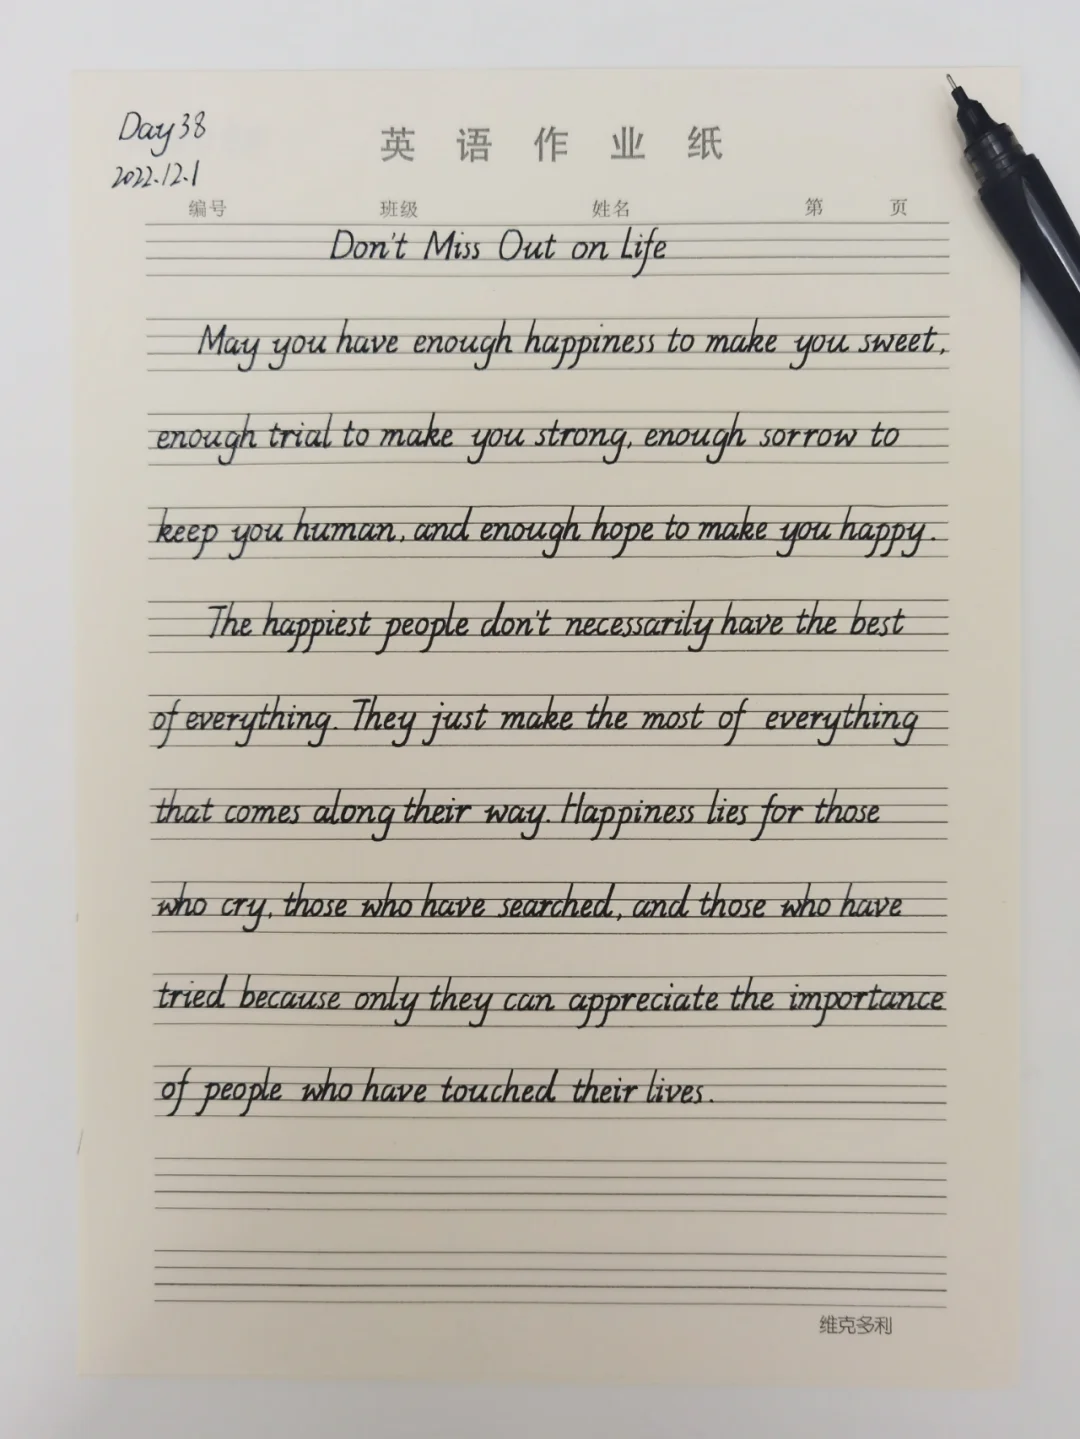 Day 38
2022.12.1
英语作业纸
编号 班级 姓名 第 页
Don't Miss Out on Life
May you have enough happiness to make you sweet,
enough trial to make you strong, enough sorrow to
keep you human, and enough hope to make you happy.
The happiest people don't necessarily have the best
of everything. They just make the most of everything
that comes along their way. Happiness lies for those
who cry, those who have searched, and those who have
tried because only they can appreciate the importance
of people who have touched their lives.
维克多利